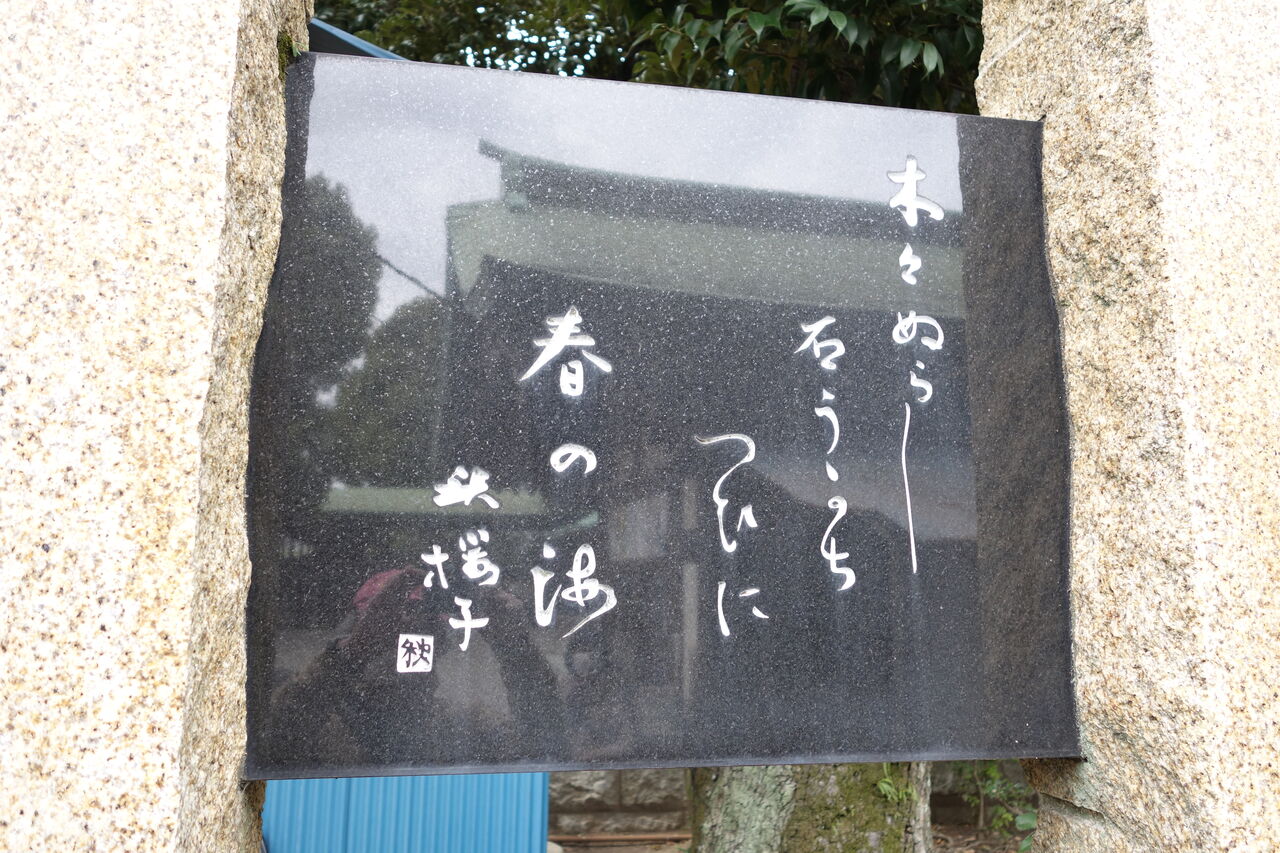 木々ぬらし
石うかち
つひに
春の海
秋櫻子
秋